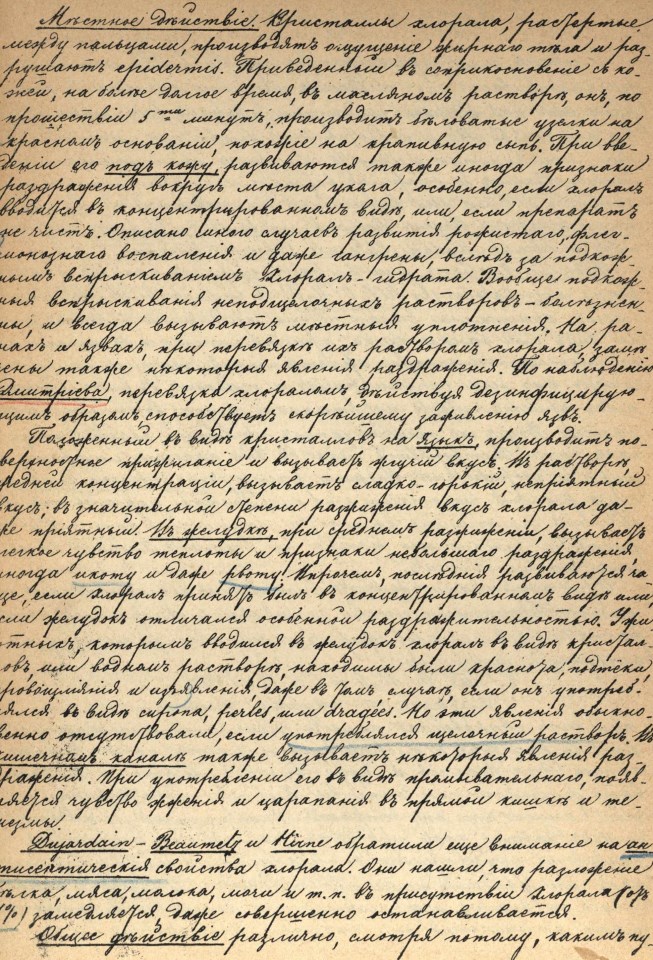 Мѣстное дѣйствіе. Кристаллы хлорала, растертые
между пальцами, производятъ ощущеніе жирнаго тѣла и раз-
рушаютъ epidermis. Приведенный въ соприкосновеніе съ ко-
жей, на болѣе долгое время, въ масляномъ растворѣ, онъ, по
прошествіи 5ти минутъ, производитъ бѣловатые узелки на
красномъ основаніи, похожіе на крапивную сыпь. При вве-
деніи его подъ кожу, развиваются также иногда признаки
раздраженія вокругъ мѣста укола, особенно, если хлоралъ
вводится въ концентрированномъ видѣ, или, если препаратъ
не чистъ. Описано много случаевъ развитія рожистаго, флег-
монознаго воспаленія и даже гангрены, вслѣдъ за подкож-
нымъ впрыскиваніемъ хлоралъ-гидрата. Вообще подкож-
ныя впрыскиванія неподщелочныхъ растворовъ - болѣзнен-
ны, и всегда вызываютъ мѣстныя уплотненія. На ра-
нахъ и язвахъ, при перевязкѣ ихъ растворомъ хлорала, замѣ-
чены также нѣкоторыя явленія раздраженія. По наблюденію
Дмитріева, перевязка хлораломъ, дѣйствуя дезинфицирую-
щимъ образомъ способствуетъ скорѣйшему заживленію язвъ.
Положенный въ видѣ кристалловъ на языкъ, производитъ по-
верхностное прижиганіе и вызываетъ жгучій вкусъ. Въ растворѣ,
средней концентраціи, вызываетъ сладко-горькій, непріятный
вкусъ; въ значительной степени разжиженія вкусъ хлорала да-
же пріятный. Въ желудкѣ, при среднемъ разжиженіи, вызываетъ
легкое чувство теплоты и признаки небольшаго раздраженія,
иногда икоту и даже рвоту. Впрочемъ, послѣднія развиваются ча-
ще, если хлоралъ принятъ былъ въ концентрированномъ видѣ или,
если желудокъ отличался особенной раздражительностью. У жи-
вотныхъ, которымъ вводился въ желудокъ хлоралъ въ видѣ кристал-
ловъ или водномъ растворѣ, находимы были краснота, подтёки,
кровоизліянія и изъявленія, даже въ томъ случаѣ, если онъ употреб-
лялся въ видѣ сиропа, perles, или dragées. Но эти явленія обыкно-
венно отсутствовали, если употреблялся щелочный растворъ. Въ
кишечномъ каналѣ также вызываетъ нѣкоторыя явленія раз-
драженія. При употребленіи его въ видѣ промывательнаго, появ-
ляется чувство жженія и царапанія въ прямой кишкѣ и те-
незмы.
Dujardain - Beaumetz и Hirne обратили еще вниманіе на ан-
тисептическія свойства хлорала. Они нашли, что разложеніе
бѣлка, мяса, молока, мочи и т.п. въ присутствіи хлорала (отъ
1%) замедляется, даже совершенно останавливается.
Общее дѣйствіе различно, смотря потому, какимъ пу-